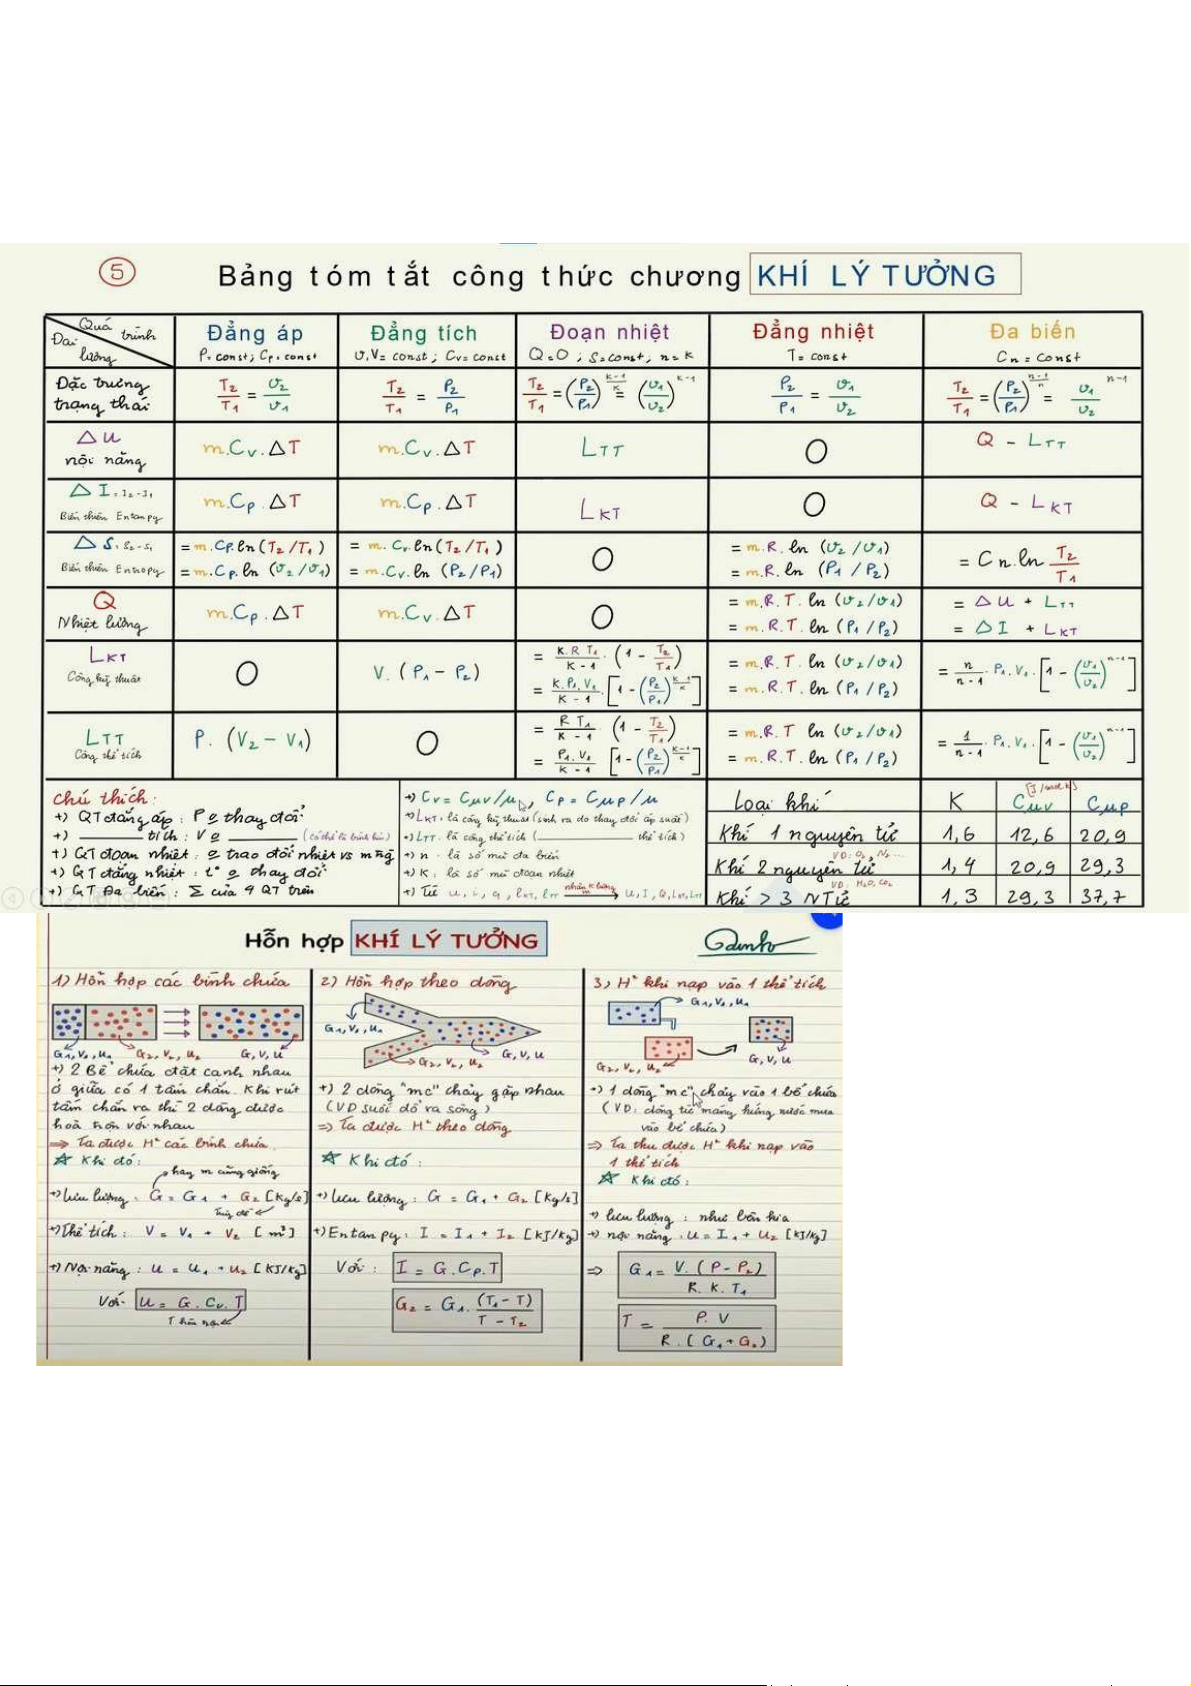 5 Bảng tóm tắt công thức chương KHÍ LÝ TƯỞNG
Quá trình
Đại lượng
Đẳng áp
P = const; Cp = const
Đẳng tích
v,V = const; Cv = const
Đoạn nhiệt
Q=0; S=const; n=K
Đẳng nhiệt
T = const
Đa biến
Cn = const
Đặc trưng trạng thái
T2/T1 = v2/v1
T2/T1 = P2/P1
T2/T1 = (P2/P1)^((K-1)/K) = (v1/v2)^(K-1)
P2/P1 = v1/v2
T2/T1 = (P2/P1)^((n-1)/n) = v1/v2^(n-1)
ΔU nội năng
m.Cv.ΔT
m.Cv.ΔT
LTT
O
Q - LTT
ΔI = I2-I1
Biến thiên Entanpy
m.Cp.ΔT
m.Cp.ΔT
LKT
O
Q - LKT
ΔS = S2-S1
Biến thiên Entropy
= m.Cp.ln(T2/T1)
= m.Cp.ln(v2/v1)
= m.Cv.ln(T2/T1)
= m.Cv.ln(P2/P1)
O
= m.R.ln(v2/v1)
= m.R.ln(P1/P2)
= Cn.ln T2/T1
Q
Nhiệt lượng
m.Cp.ΔT
m.Cv.ΔT
O
= m.R.T.ln(v2/v1)
= m.R.T.ln(P1/P2)
= ΔU + LTT
= ΔI + LKT
LKT
Công kỹ thuật
O
V.(P1-P2)
= K.R.T1/(K-1).(1 - T2/T1)
= K.P1.V1/(K-1).[1-(P2/P1)^((K-1)/K)]
= m.R.T.ln(v2/v1)
= m.R.T.ln(P1/P2)
= n/(n-1).P1.V1.[1-(v1/v2)^(n-1)]
LTT
Công thể tích
P.(V2-V1)
O
= R T1/(K-1) (1 - T2/T1)
= P1.V1/(K-1) [1-(P2/P1)^((K-1)/K)]
= m.R.T ln(v2/v1)
= m.R.T.ln(P1/P2)
= 1/(n-1).P1.V1.[1-(v1/v2)^(n-1)]
Chú thích:
+) QT đẳng áp: P o thay đổi
+) ____ tích: V o ____ (có thể là bình kín)
+) QT đoạn nhiệt: o trao đổi nhiệt vs mtg
+) QT đẳng nhiệt: t° o thay đổi
+) QT Đa biến: Σ của 4 QT trên
+) Cv = Cμv/μ, Cp = Cμp/μ
+) LKT: là công kỹ thuật (sinh ra do thay đổi áp suất)
+) LTT: là công thể tích (____ thể tích)
+) n: là số mũ đa biến
+) K: là số mũ đoạn nhiệt
+) Từ u, i, q, lKT, lTT nhân K lượng m → U, I, Q, LKT, LTT
Loại khí K Cμv Cμp
Khí 1 nguyên tử 1,6 12,6 20,9
VD: O2, N2...
Khí 2 nguyên tử 1,4 20,9 29,3
VD: H2O, CO2
Khí > 3 NTử 1,3 29,3 37,7
Hỗn hợp KHÍ LÝ TƯỞNG
1) Hỗn hợp các bình chứa
G1, V1, U1 G2, V2, U2 G, V, U
+) 2 Bể chứa đặt cạnh nhau
ở giữa có 1 tấm chắn. Khi rút
tấm chắn ra thì 2 dòng được
hoà trộn với nhau
⇒ Ta được H² các bình chứa.
☆ Khi đó:
hay m cũng giống
+) Lưu lượng: G = G1 + G2 [Kg/s]
+) Thể tích: V = V1 + V2 [m³]
+) Nội năng: U = U1 + U2 [KJ/Kg]
Với U = G.Cv.T
2) Hỗn hợp theo dòng
G1, V1, U1
G2, V2, U2 G, V, U
+) 2 dòng "mc" chảy gặp nhau
(VD suối đổ ra sông)
⇒ Ta được H² theo dòng
☆ Khi đó:
+) Lưu lượng: G = G1 + G2 [Kg/s]
+) Entanpy: I = I1 + I2 [KJ/Kg]
Với: I = G.Cp.T
G2 = G1.(T1-T)/(T-T2)
3) H² khi nạp vào 1 thể tích
G1, V1, U1
G2, V2, U2 G, V, U
+) 1 dòng "mc" chảy vào 1 bể chứa
(VD: dòng từ máng hứng nước mưa
vào bể chứa)
⇒ Ta thu được H² khi nạp vào
1 thể tích
☆ Khi đó:
+) lưu lượng: như bên kia
+) nội năng: U = I1 + U2 [KJ/Kg]
⇒ G1 = V.(P-P2)/(R.K.T1)
T = P.V/(R.(G1+G2))